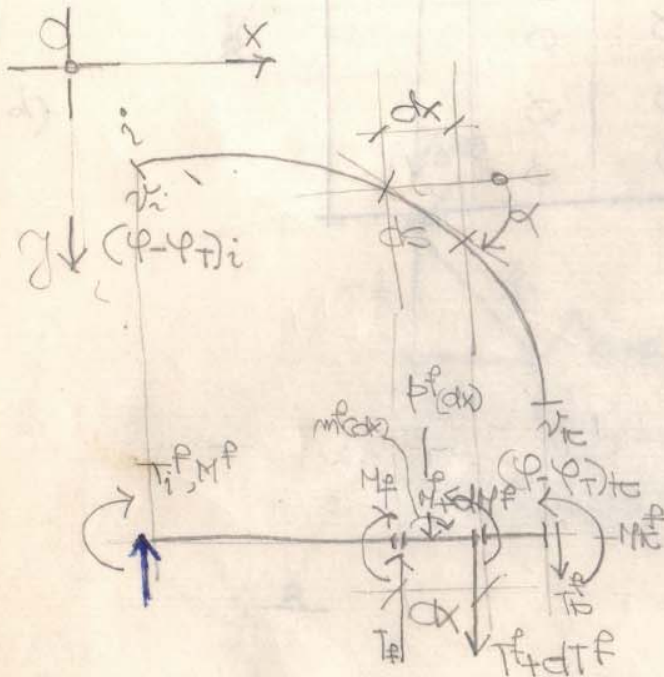 O
x
dx
i
v_i
ds
α
y (φ-φ_T)_i
p^f(dx)
m^f(dx)
v_k
(φ-φ_T)_k
T_i^f, M^f
M^f
M^f+dM^f
M_k^f
T_k^f
dx
T^f
T^f+dT^f